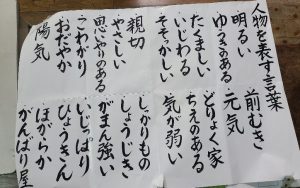 人物を表す言葉
明るい
ゆうきのある
たくましい
いじわる
そそかしい
前むき
元気
どりょく家
ちえのある
気が弱い
親切
やさしい
思いやりのある
こわがり
おだやか
陽気
しっかりもの
しょうじき
がまん強い
いじっぱり
ひょうきん
ほがらか
がんばり屋